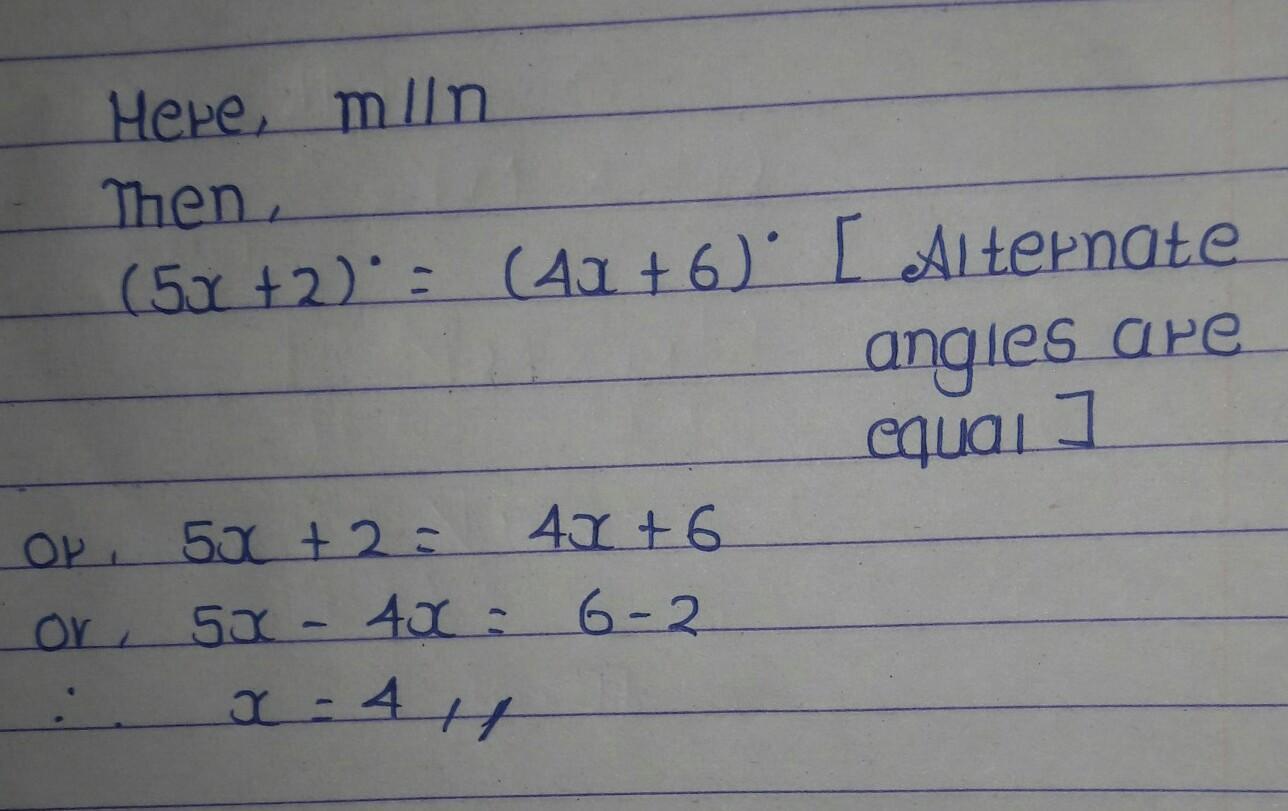 Here, m||n
Then,
(5x + 2)° = (4x + 6)° [ Alternate
angles are
equal ]
or, 5x + 2 = 4x + 6
or, 5x - 4x = 6 - 2
∴ x = 4 ,,